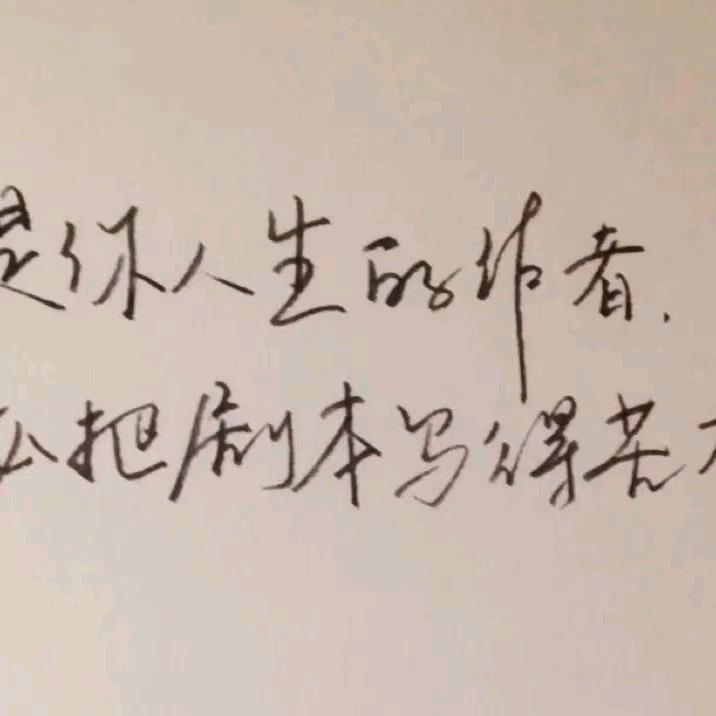 是你人生的作者.
把剧本写得苦